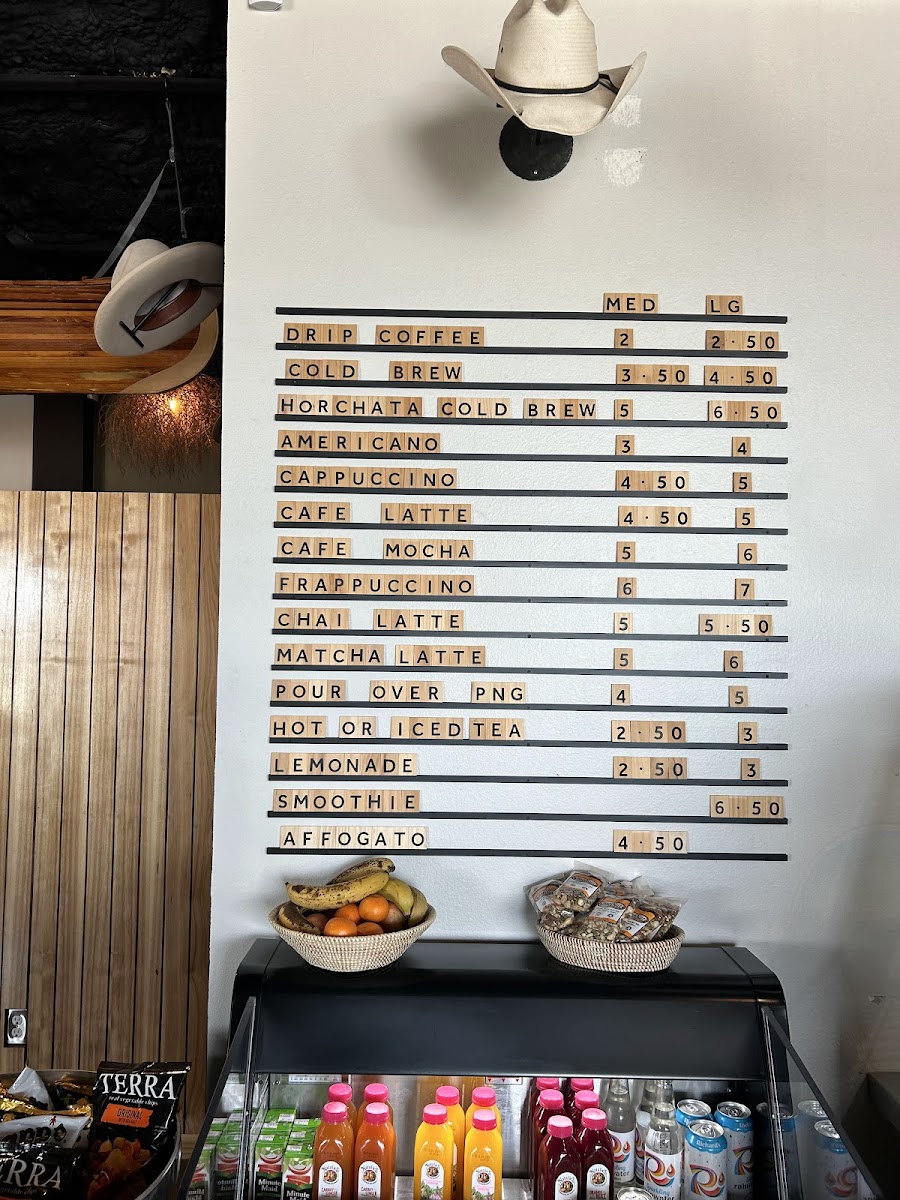 MED LG
DRIP COFFEE 2 2.50
COLD BREW 3.50 4.50
HORCHATA COLD BREW 5 6.50
AMERICANO 3 4
CAPPUCCINO 4.50 5
CAFE LATTE 4.50 5
CAFE MOCHA 5 6
FRAPPUCCINO 6 7
CHAI LATTE 5 5.50
MATCHA LATTE 5 6
POUR OVER PNG 4 5
HOT OR ICED TEA 2.50 3
LEMONADE 2.50 3
SMOOTHIE 6.50
AFFOGATO 4.50
TERRA
real vegetable chips
ORIGINAL
Minute Maid